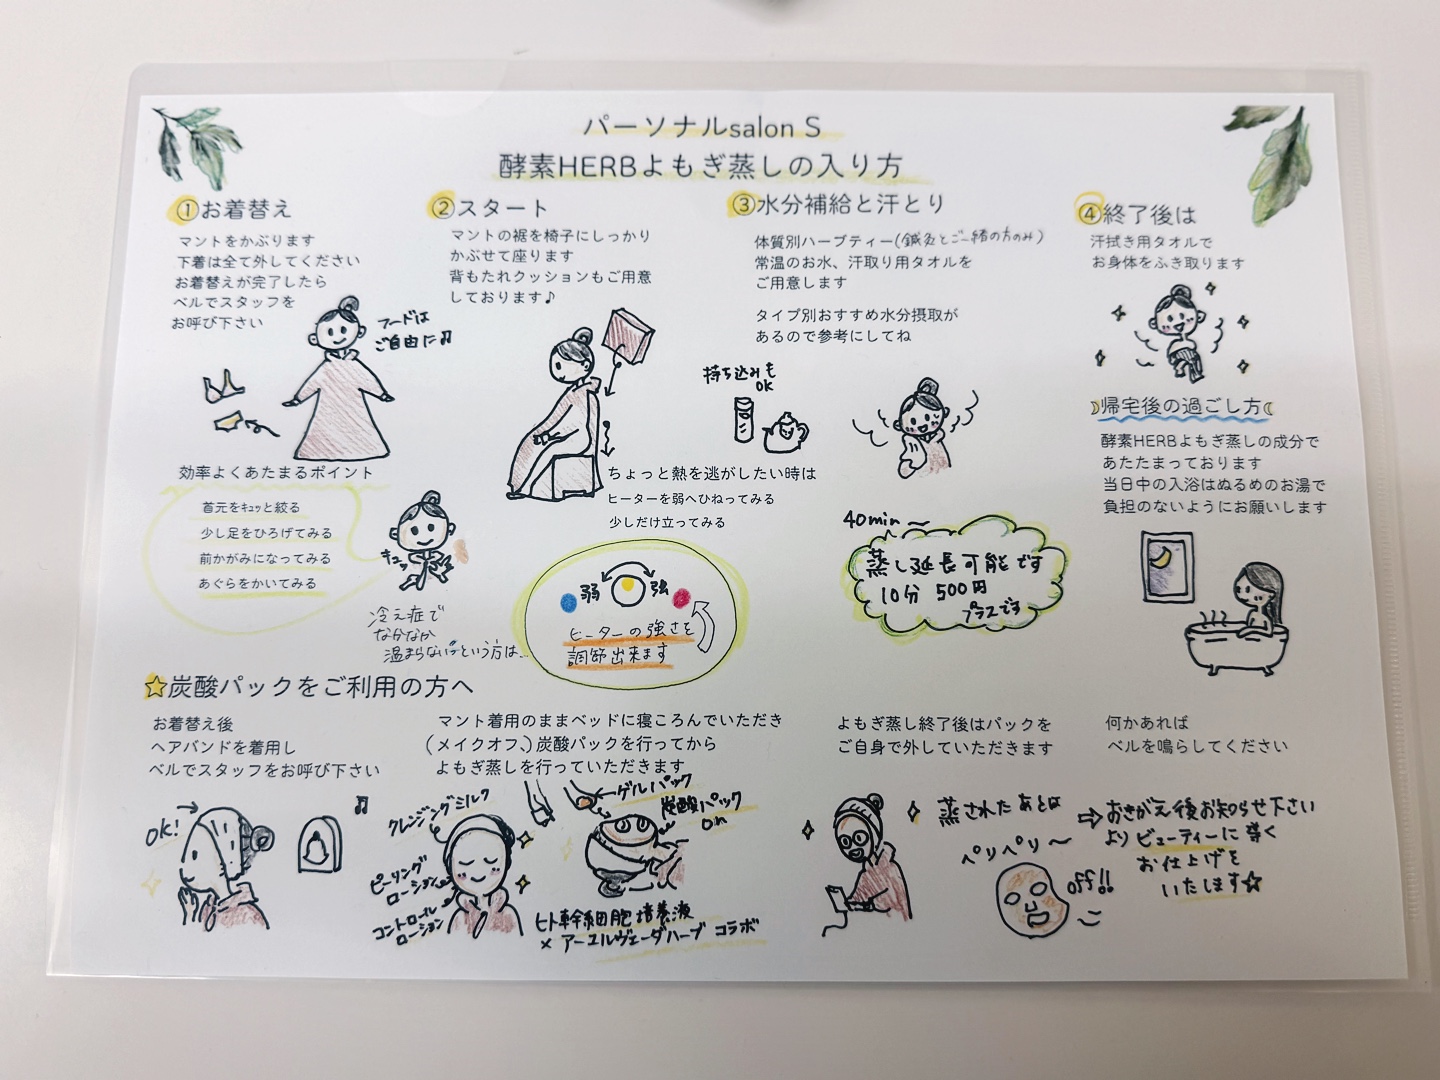 パーソナルsalon S
酵素HERBよもぎ蒸しの入り方
①お着替え
マントをかぶります
下着は全て外してください
お着替えが完了したら
ベルでスタッフを
お呼び下さい
フードは
ご自由に♫
効率よくあたまるポイント
首元をキュッと絞る
少し足をひろげてみる
前かがみになってみる
あぐらをかいてみる
キュッ
冷え症で
なかなか
温まらないという方は…
②スタート
マントの裾を椅子にしっかり
かぶせて座ります
背もたれクッションもご用意
しております♪
ちょっと熱を逃がしたい時は
ヒーターを弱へひねってみる
少しだけ立ってみる
弱 強
ヒーターの強さを
調節出来ます
③水分補給と汗とり
体質別ハーブティー(鍼灸とご一緒の方のみ)
常温のお水、汗取り用タオルを
ご用意します
タイプ別おすすめ水分摂取が
あるので参考にしてね
持ち込みも
OK
40min〜
蒸し延長可能です
10分 500円
プラスです
④終了後は
汗拭き用タオルで
お身体をふき取ります
帰宅後の過ごし方
酵素HERBよもぎ蒸しの成分で
あたたまっております
当日中の入浴はぬるめのお湯で
負担のないようにお願いします
☆炭酸パックをご利用の方へ
お着替え後
ヘアバンドを着用し
ベルでスタッフをお呼び下さい
OK!
♫
マント着用のままベッドに寝ころんでいただき
(メイクオフ、)炭酸パックを行ってから
よもぎ蒸しを行っていただきます
クレンジングミルク
ピーリング
ローション
コントロール
ローション
ゲルパック
炭酸パック
on
ヒト幹細胞培養液
×アーユルヴェーダハーブ コラボ
よもぎ蒸し終了後はパックを
ご自身で外していただきます
蒸されたあとは
ペリペリ〜
off!!
何かあれば
ベルを鳴らしてください
⇨おきがえ後お知らせ下さい
よりビューティーに導く
お仕上げを
いたします☆